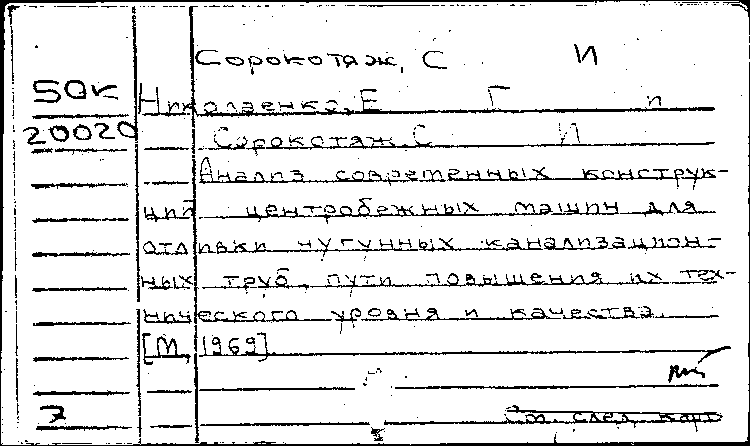 Сорокотяж, С И
50к Николаенко, Е Г и
20020 Сорокотяж, С И
Анализ современных конструк-
ций центробежных машин для
отливки чугунных канализацион-
ных труб, пути повышения их тех-
нического уровня и качества.
[М, 1969].
7 См. след. карт